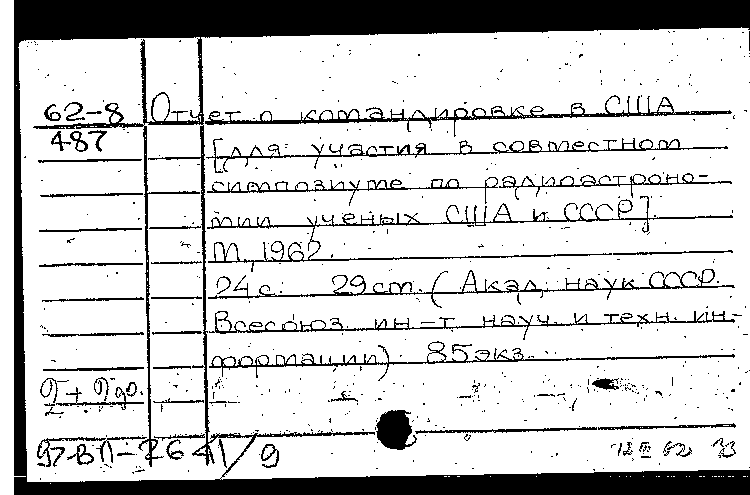 62-8 Отчет о командировке в США
487 [для участия в совместном
симпозиуме по радиоастроно-
мии ученых США и СССР].
М., 1962.
24 с. 29 см. (Акад. наук СССР.
Всесоюз. ин-т науч. и техн. ин-
формации) 85 экз.
97-ВЛ-7641/9